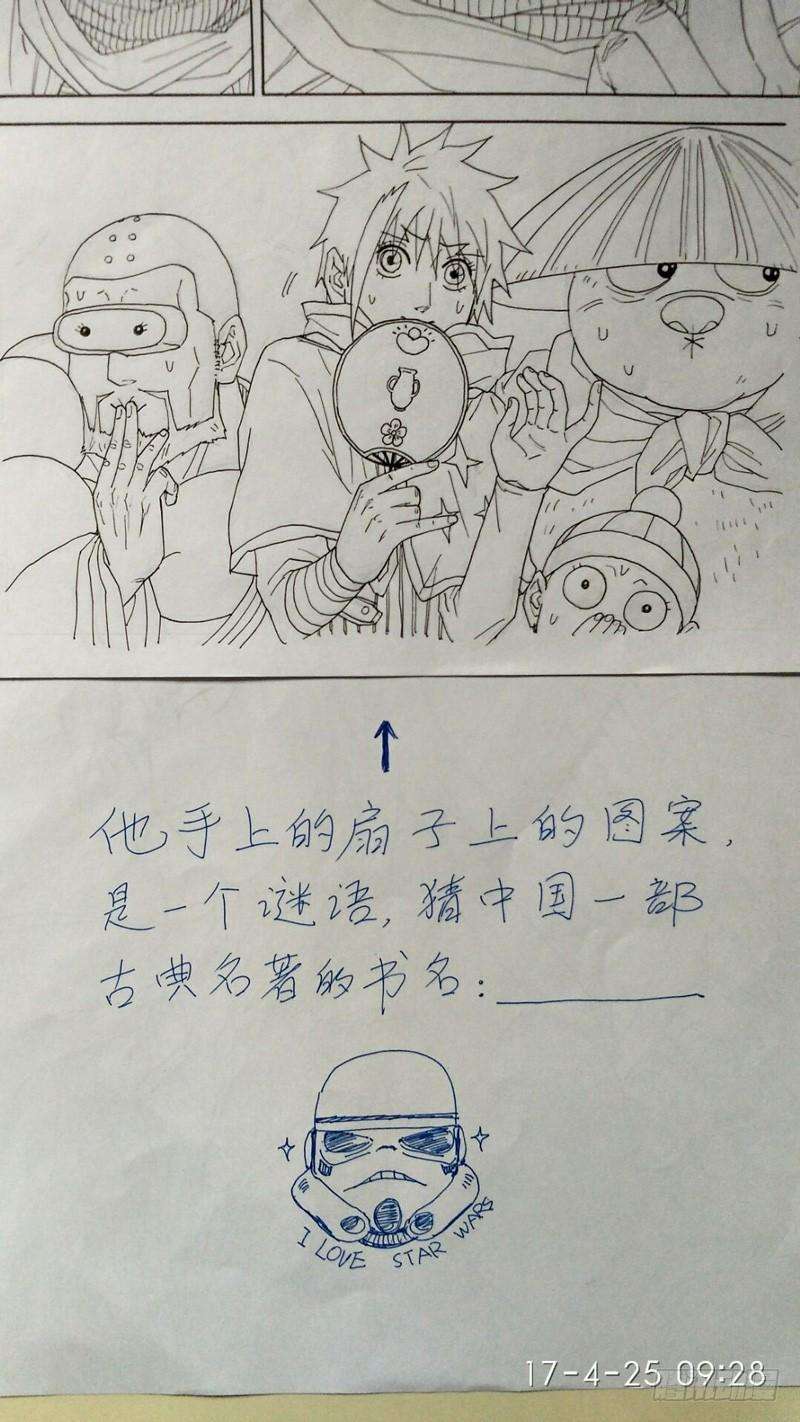 他手上的扇子上的图案,
是一个谜语,猜中国一部
古典名著的书名:
I LOVE STAR WARS
17-4-25 09:28